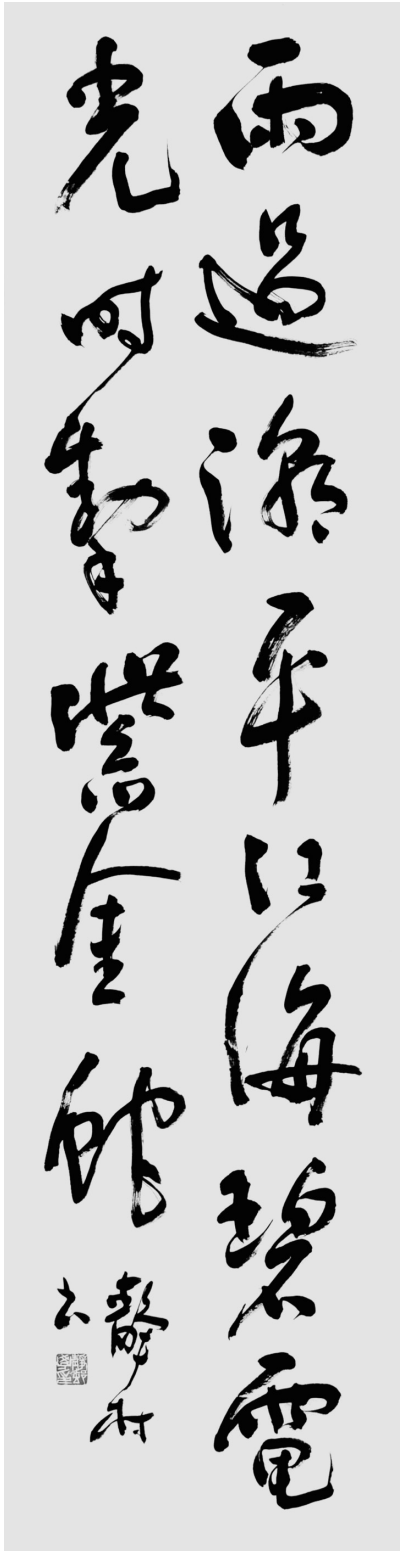 雨過潮平江海碧電
光時掣紫金蛇
靜村
書